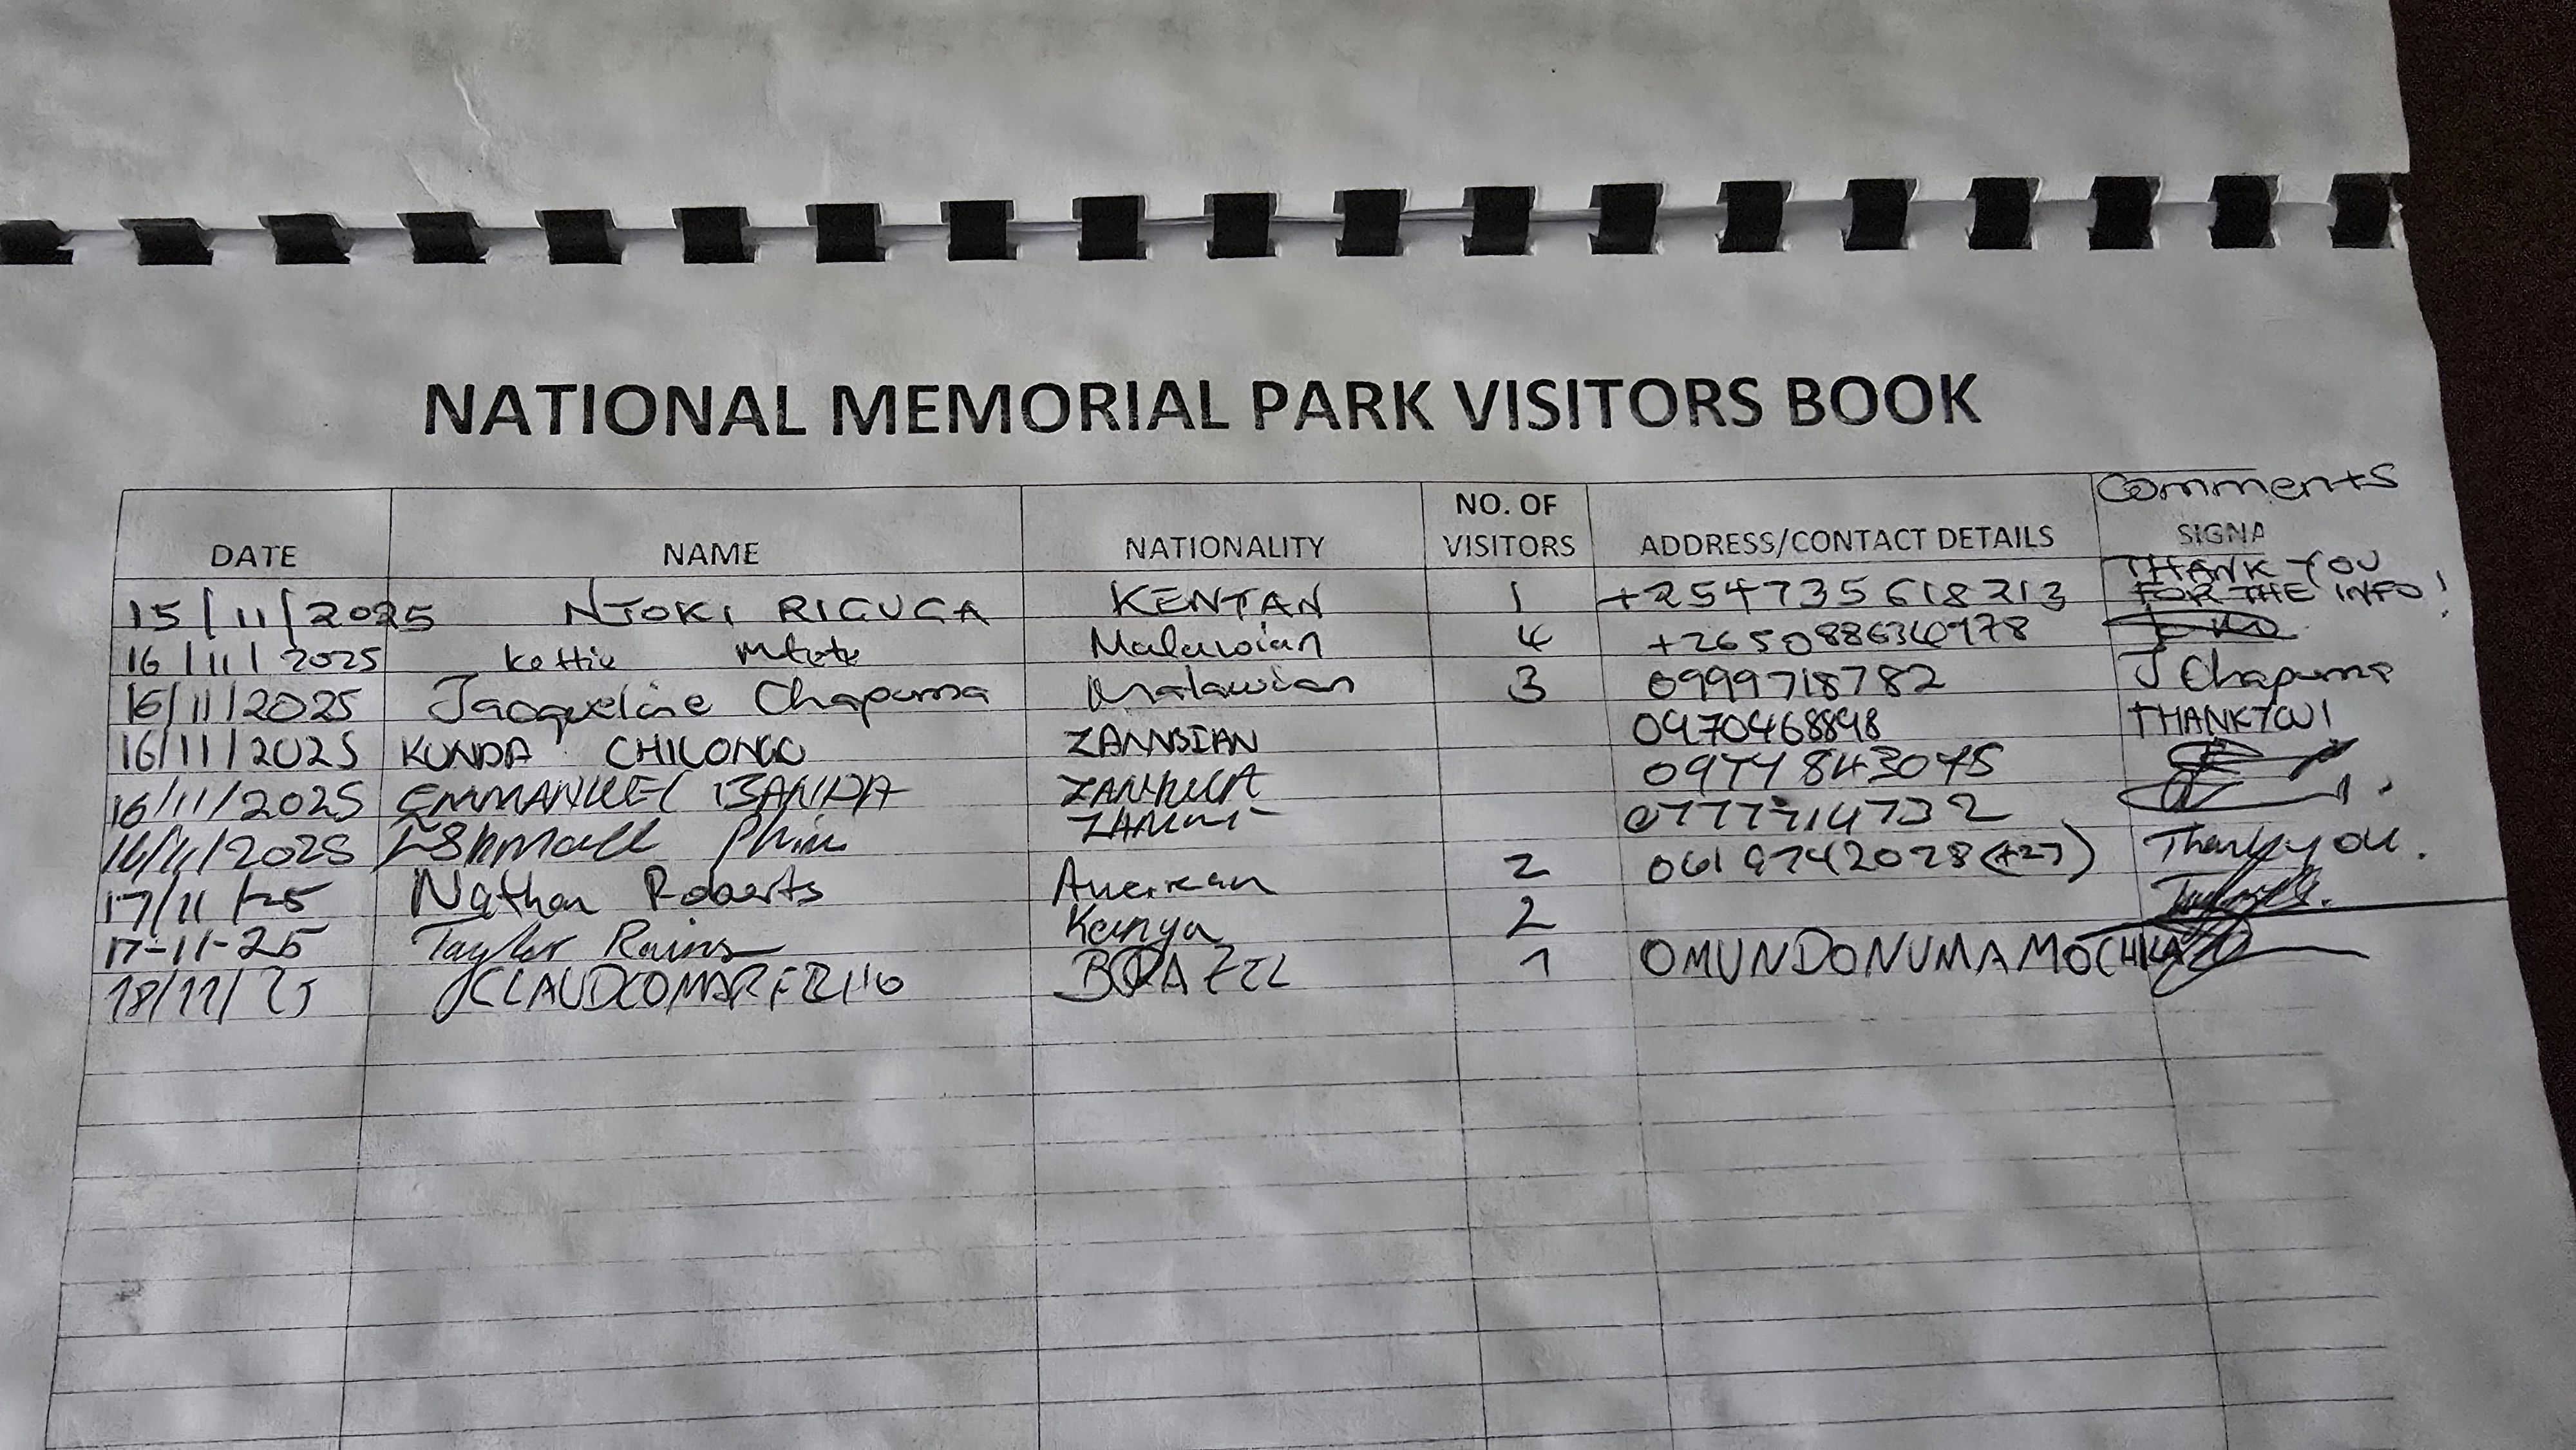 NATIONAL MEMORIAL PARK VISITORS BOOK
DATE NAME NATIONALITY NO. OF VISITORS ADDRESS/CONTACT DETAILS Comments SIGNA
15/11/2025 NJOKI RIGUGA KENYAN 1 +254735618213 THANK YOU FOR THE INFO!
16/11/2025 Kettie Malawian 4
16/11/2025 Jacqueline Chapuma Malawian 3 0999718782 J Chapuma
16/11/2025 KUNDA CHILONGO 0970468898 THANKYOU!
16/11/2025 EMMANUEL BANDA
16/11/2025
17/11/25 Nathan Roberts American 2 0619742028(+27) Thank you.
17-11-25 Taylor Rains Kenya 2
18/11/25 BRAZIL 1 OMUNDONUMAMOCHILA